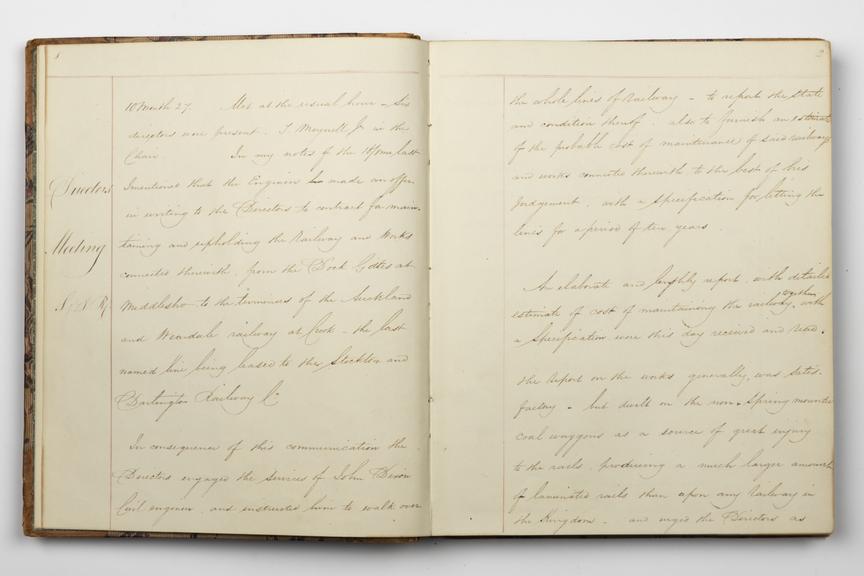 1
10 Month 27. Met at the usual hour - Six
directors were present. T Meynell Jr in the
Chair. In my notes of the last
Directors
I mentioned that the Engineer had made an offer
in writing to the Directors to contract for main-
Meeting
taining and upholding the Railway and Works
connected therewith, from the Dock Gates at
S & D Ry
Middlesbro to the terminus of the Auckland
and Weardale railway at Crook - the last
named line being leased to the Stockton and
Darlington Railway Co
In consequence of this communication the
Directors engaged the services of John Dixon
Civil engineer, and instructed him to walk over
2
the whole lines of Railway - to report the state
and condition thereof, also to furnish an estimate
of the probable cost of maintenance of said railways
and works connected therewith to the best of his
Judgement, with a Specification for letting the
lines for a period of ten years.
An elaborate and lengthy report, with detailed
estimate of cost of maintaining the railway, together with
a Specification were this day received and read.
The Report on the works generally, was satis-
factory - but dwelt on the non-Spring mounted
coal waggons as a source of great injury
to the rails, producing a much larger amount
of laminated rails than upon any Railway in
the Kingdom. and urged the Directors as